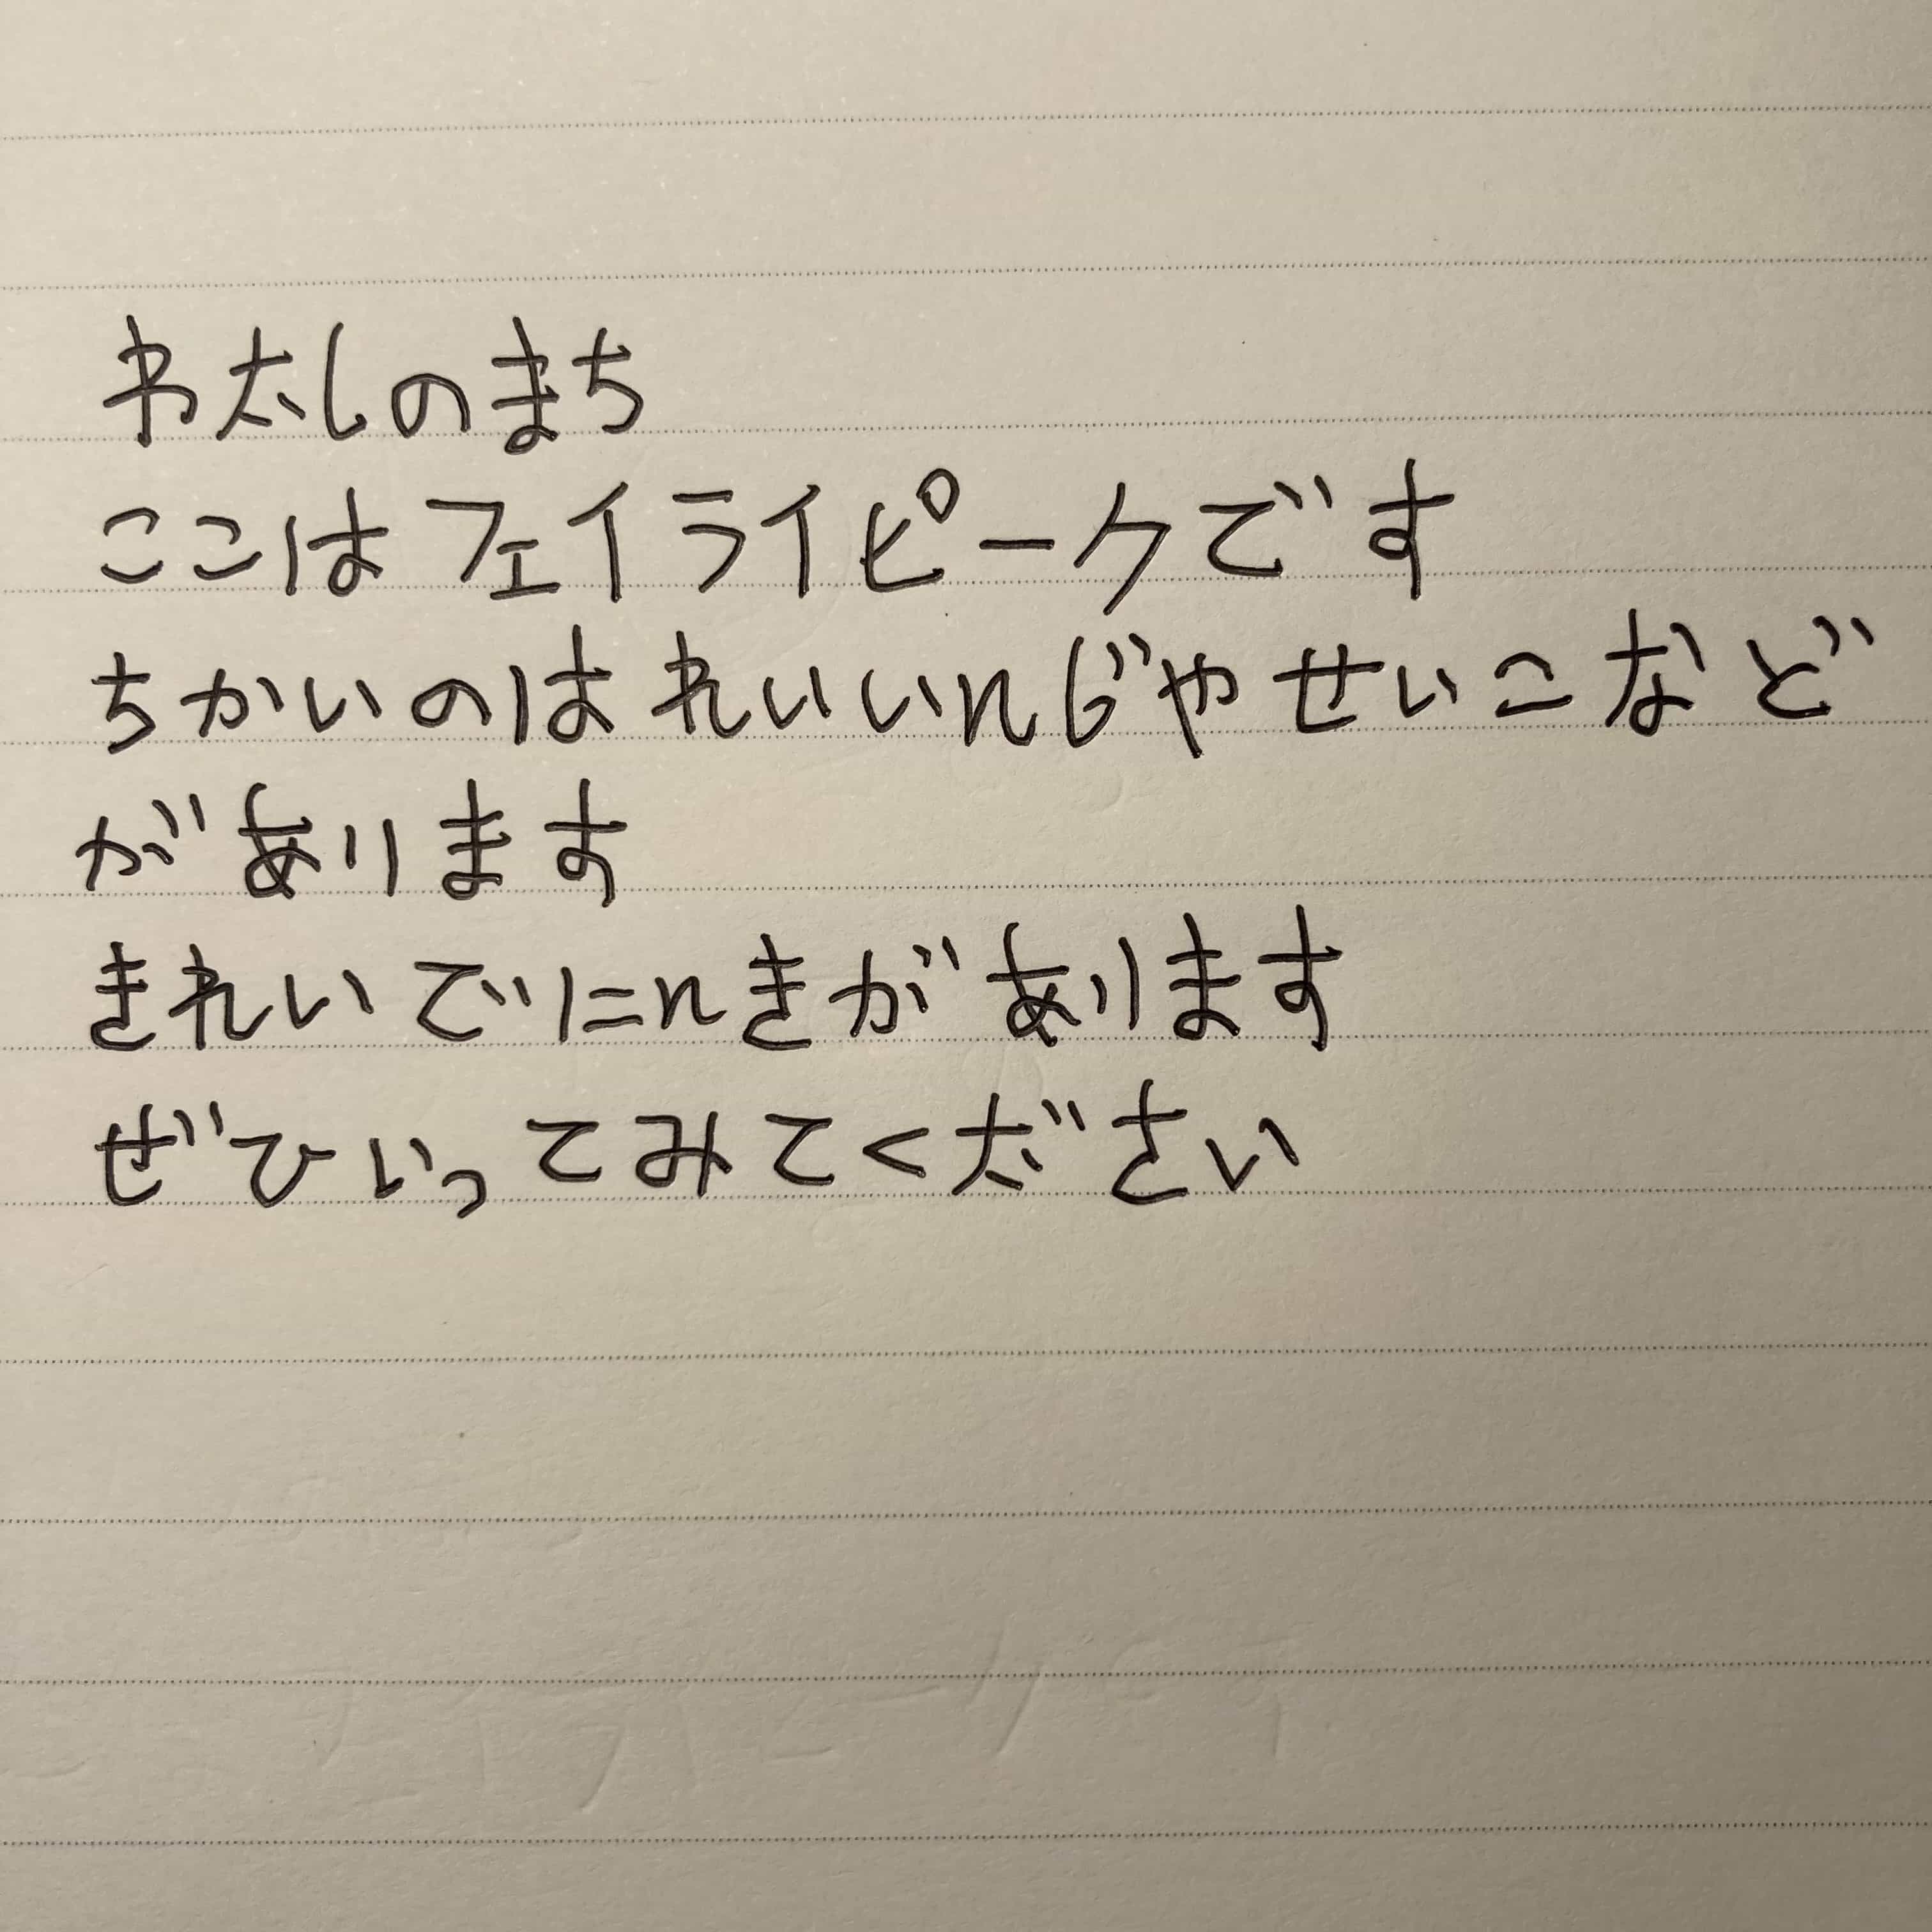 わたしのまち
ここはフェイライピークです
ちかいのはれいいんじやせいこなど
があります
きれいでにんきがあります
ぜひいってみてください